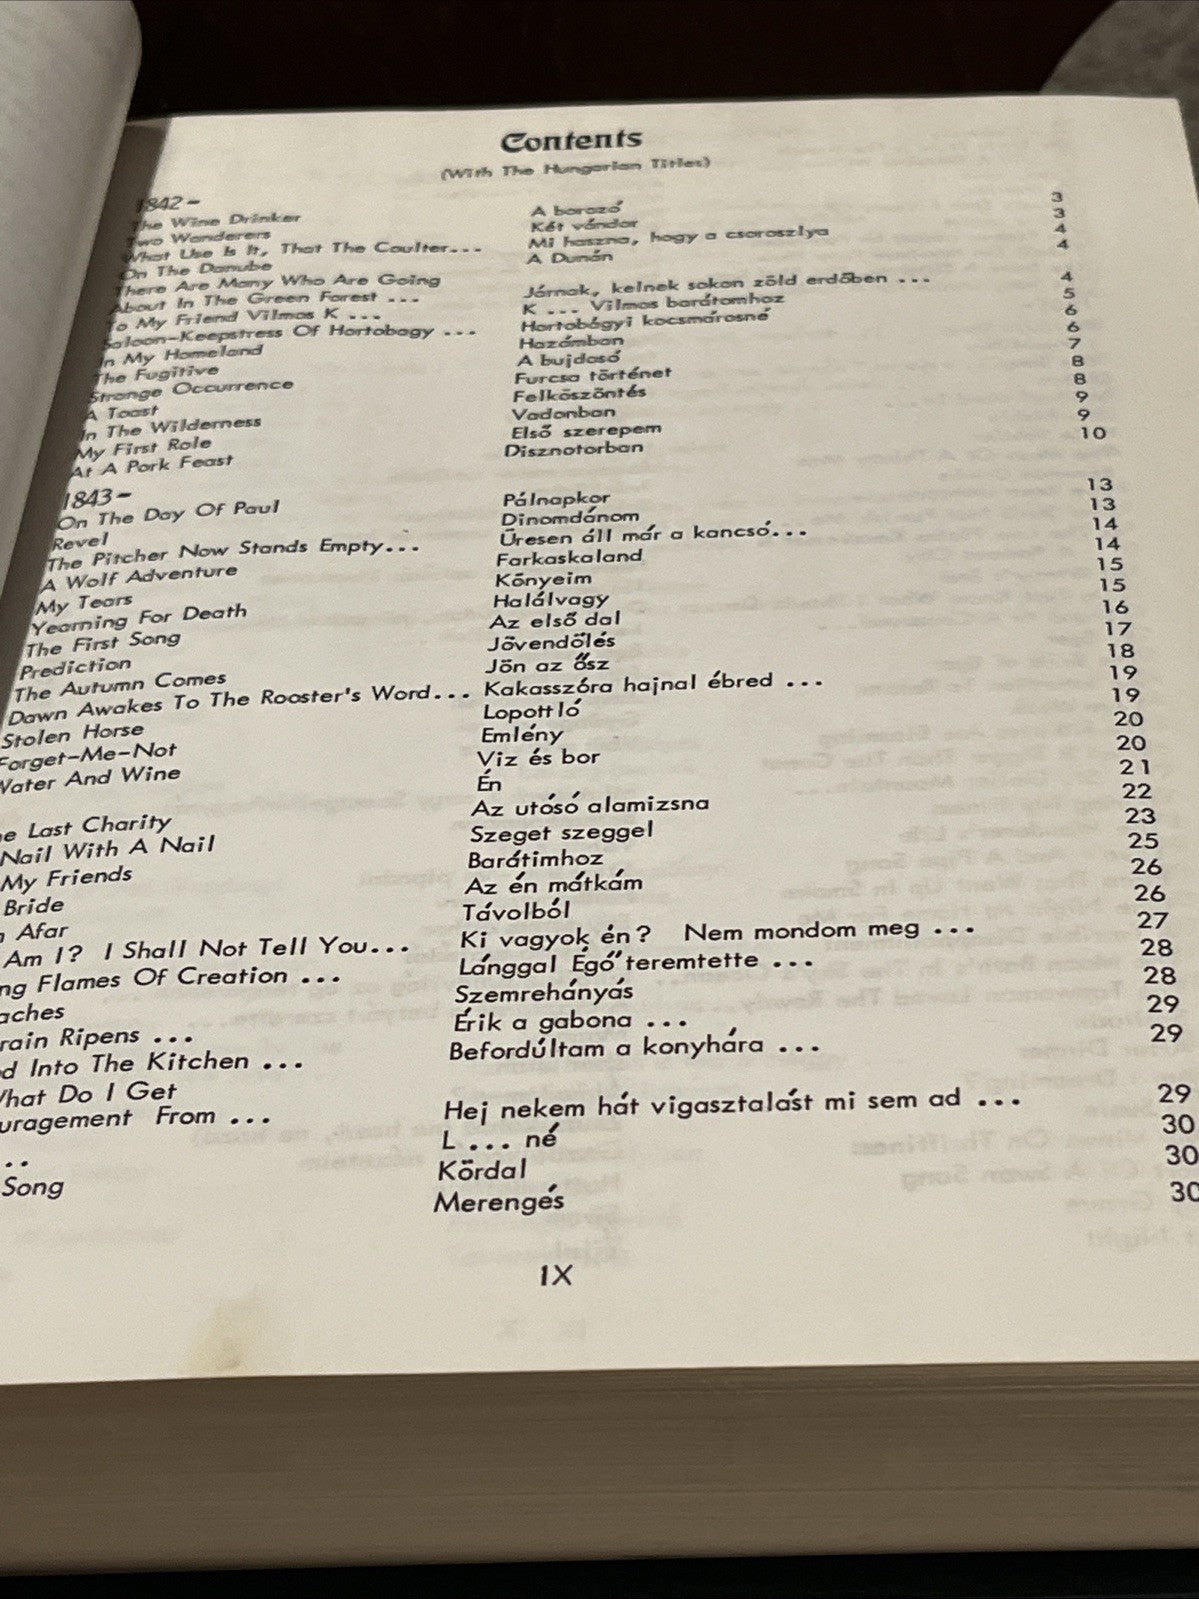 Contents
(With The Hungarian Titles)
1842-
The Wine Drinker A borozó 3
Two Wanderers Két vándor 3
What Use Is It, That The Coulter... Mi haszna, hogy a csoroszlya 4
On The Danube A Dunán 4
There Are Many Who Are Going
About In The Green Forest ... Járnak, kelnek sokan zöld erdőben ... 4
To My Friend Vilmos K ... K ... Vilmos barátomhoz 5
Saloon-Keepstress Of Hortobagy ... Hortobágyi kocsmárosné 6
In My Homeland Hazámban 6
The Fugitive A bujdosó 7
Strange Occurrence Furcsa történet 8
A Toast Felköszöntés 8
In The Wilderness Vadonban 9
My First Role Első szerepem 9
At A Pork Feast Disznotorban 10
1843-
On The Day Of Paul Pálnapkor 13
Revel Dinomdánom 13
The Pitcher Now Stands Empty... Üresen áll már a kancsó... 14
A Wolf Adventure Farkaskaland 14
My Tears Könyeim 15
Yearning For Death Halálvagy 15
The First Song Az első dal 16
Prediction Jövendőlés 17
The Autumn Comes Jön az ősz 18
Dawn Awakes To The Rooster's Word... Kakasszóra hajnal ébred ... 19
Stolen Horse Lopott ló 19
Forget-Me-Not Emlény 20
Water And Wine Viz és bor 20
Én 21
Last Charity Az utósó alamizsna 22
Nail With A Nail Szeget szeggel 23
My Friends Barátimhoz 25
Bride Az én mátkám 26
Afar Távolból 26
Am I? I Shall Not Tell You... Ki vagyok én? Nem mondom meg ... 27
ng Flames Of Creation ... Lánggal Égő teremtette ... 28
aches Szemrehányás 28
rain Ripens ... Érik a gabona ... 29
d Into The Kitchen ... Befordúltam a konyhára ... 29
What Do I Get
uragement From ... Hej nekem hát vigasztalást mi sem ad ... 29
.. L ... né 30
Song Kördal 30
Merengés 30
IX